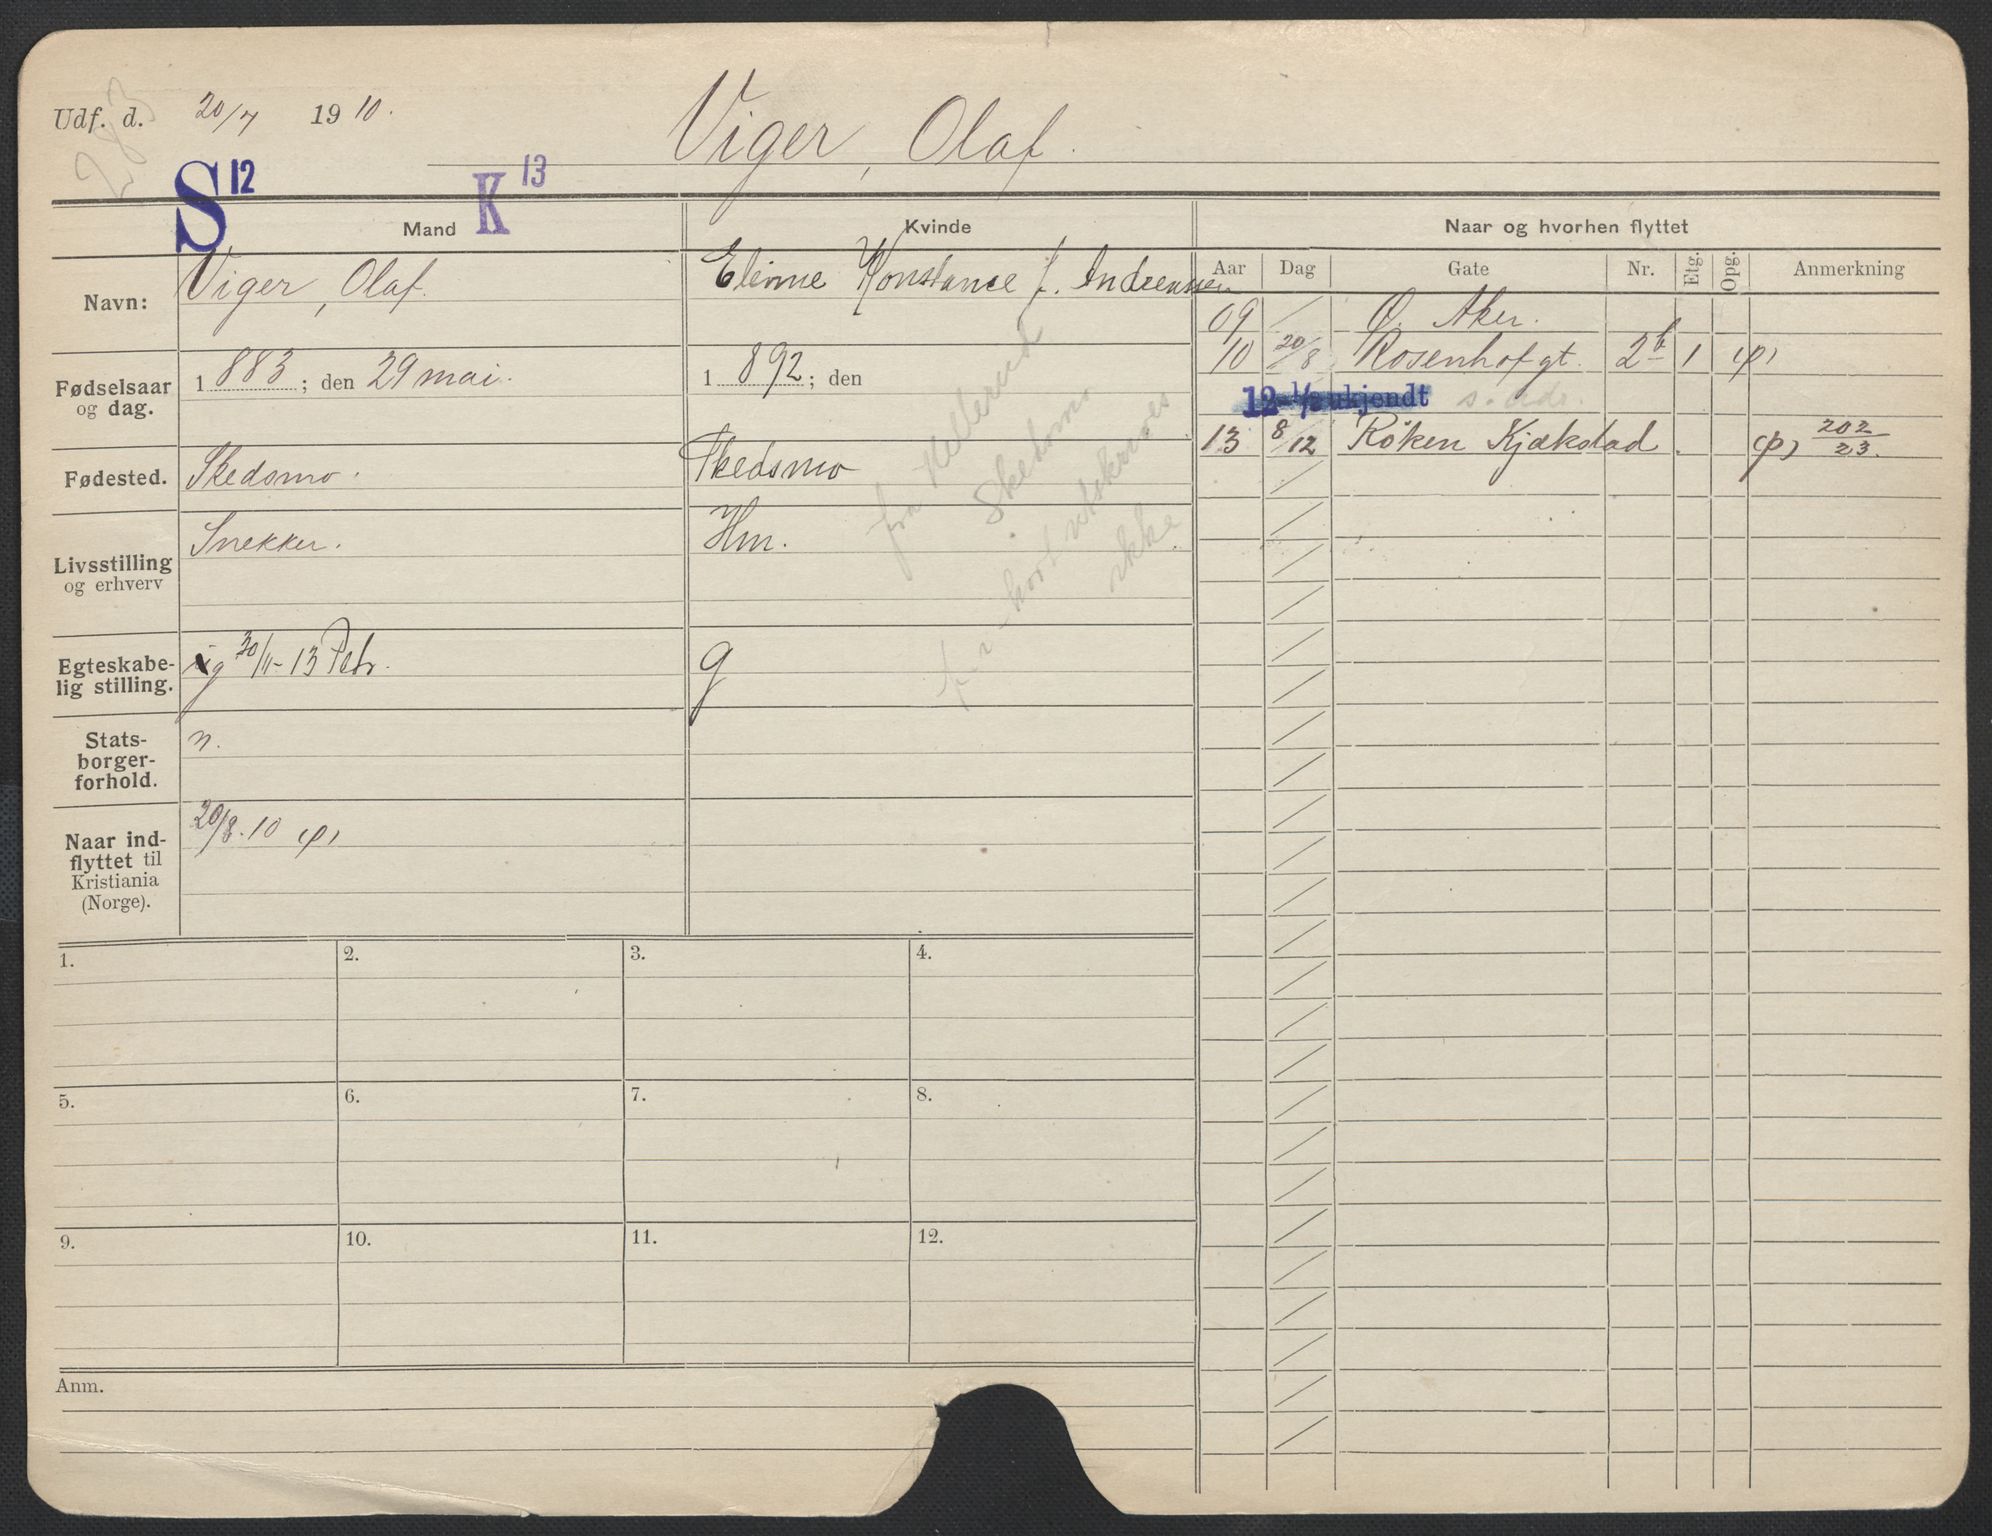 Udf. d. 20/7 1910.
283
Viger, Olaf.
S 12
K 13
Mand
Kvinde
Naar og hvorhen flyttet
Navn:
Viger, Olaf.
Konstance f. Andreassen
Aar Dag Gate Nr. Etg. Opg. Anmerkning
09 Ø. Aker.
10 20/8 Rosenhofgt. 2b 1 (p)
12 ukjendt s. adr.
13 8/12 Røken Kjækstad. (p) 202/23.
Fødselsaar og dag.
1883; den 29 mai.
1892; den
Fødested.
Skedsmo.
Skedsmo
Livsstilling og erhverv
Snekker.
Hm.
fra Hellerud
Skedsmo
ikke
Egteskabe-
lig stilling.
g 30/11-13 Petr.
g
Stats-
borger-
forhold.
n.
Naar ind-
flyttet til
Kristiania
(Norge).
20/8.10 (p)
1. 2. 3. 4.
5. 6. 7. 8.
9. 10. 11. 12.
Anm.